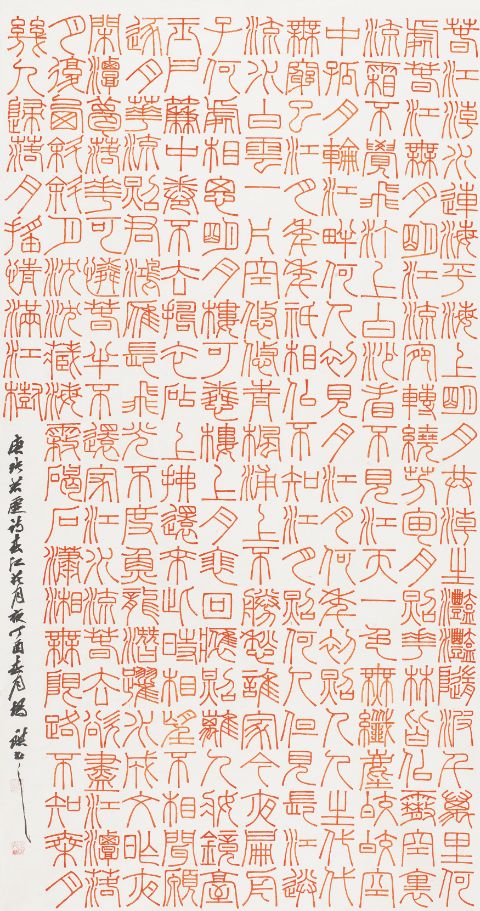 春江潮水連海平海上明月共潮生灩灩隨波千萬里何
處春江無月明江流宛轉繞芳甸月照花林皆似霰空裏
流霜不覺飛汀上白沙看不見江天一色無纖塵皎皎空
中孤月輪江畔何人初見月江月何年初照人人生代代
無窮已江月年年祇相似不知江月照何人但見長江送
流水白雲一片空悠悠青楓浦上不勝愁誰家今夜扁舟
子何處相思明月樓可憐樓上月徘徊應照離人妝鏡臺
玉戶簾中卷不去擣衣砧上拂還來此時相望不相聞願
逐月華流照君鴻雁長飛光不度魚龍潛躍水成文昨夜
閑潭夢落花可憐春半不還家江水流春去欲盡江潭落
月復西斜斜月沉沉藏海霧碣石瀟湘無限路不知乘月
幾人歸落月搖情滿江樹
唐張若虛詩春江花月夜丁酉春月楊